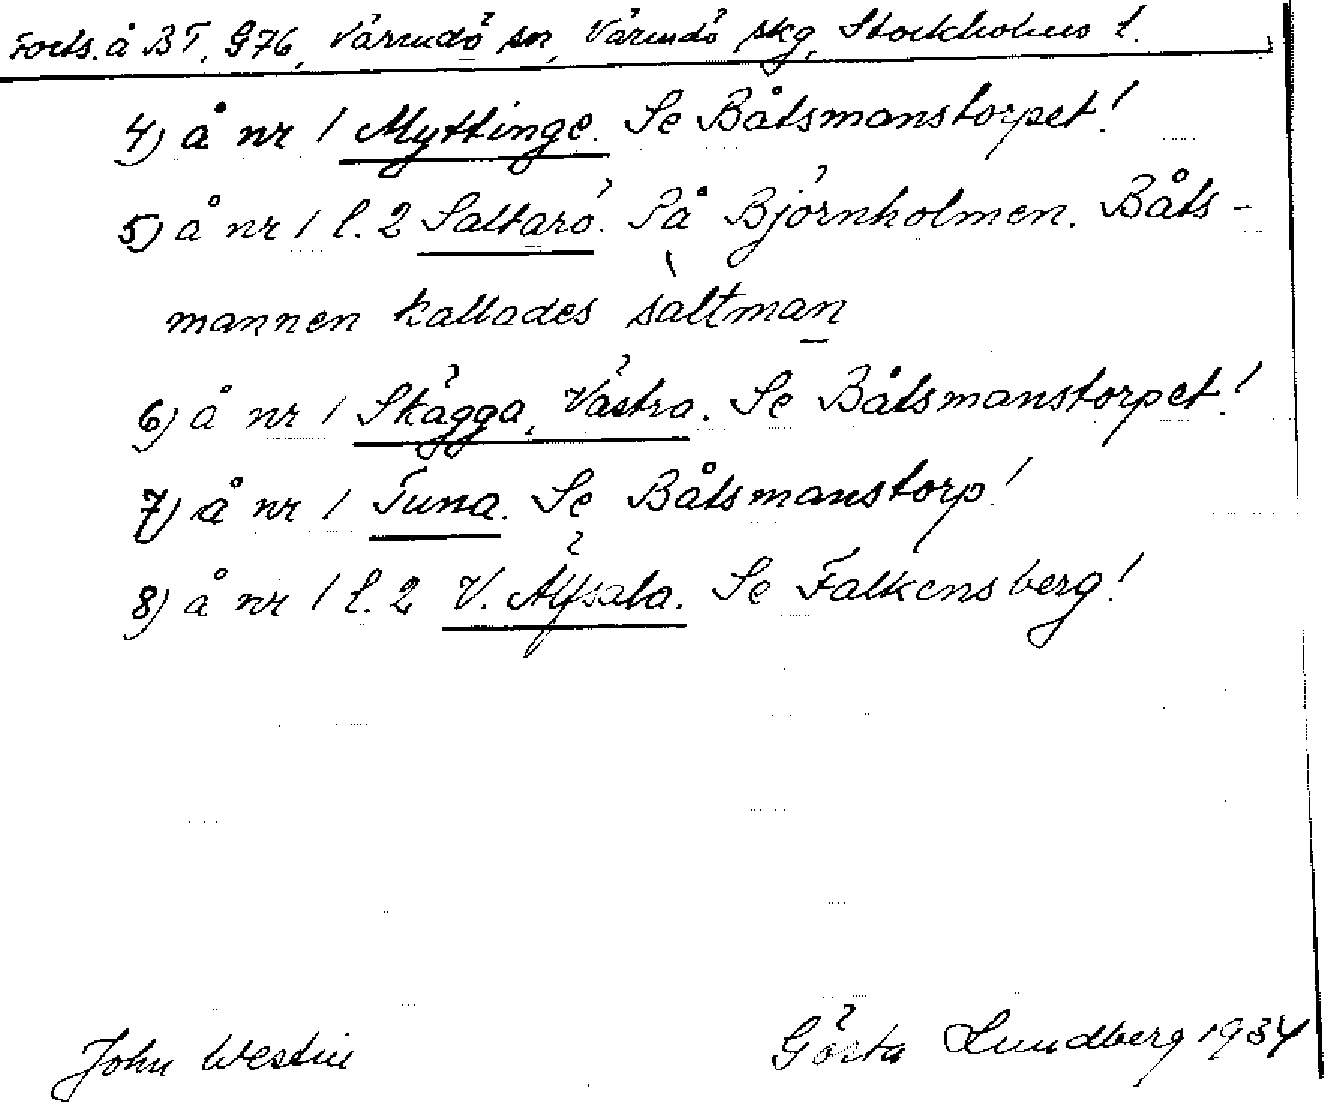 Forts. å BT, G76, Värmdö sn, Värmdö skg, Stockholms l.
4) å nr 1 Myttinge. Se Båtsmanstorpet!
5) å nr 1 l. 2 Saltarö. På Björnholmen. Båts-
mannen kallades sàltman
6) å nr 1 Skägga, Västra. Se Båtsmanstorpet!
7) å nr 1 Tuna. Se Båtsmanstorp!
8) å nr 1 l. 2 V. Älfsala. Se Falkensberg!
John Westin
Gösta Lundberg 1934